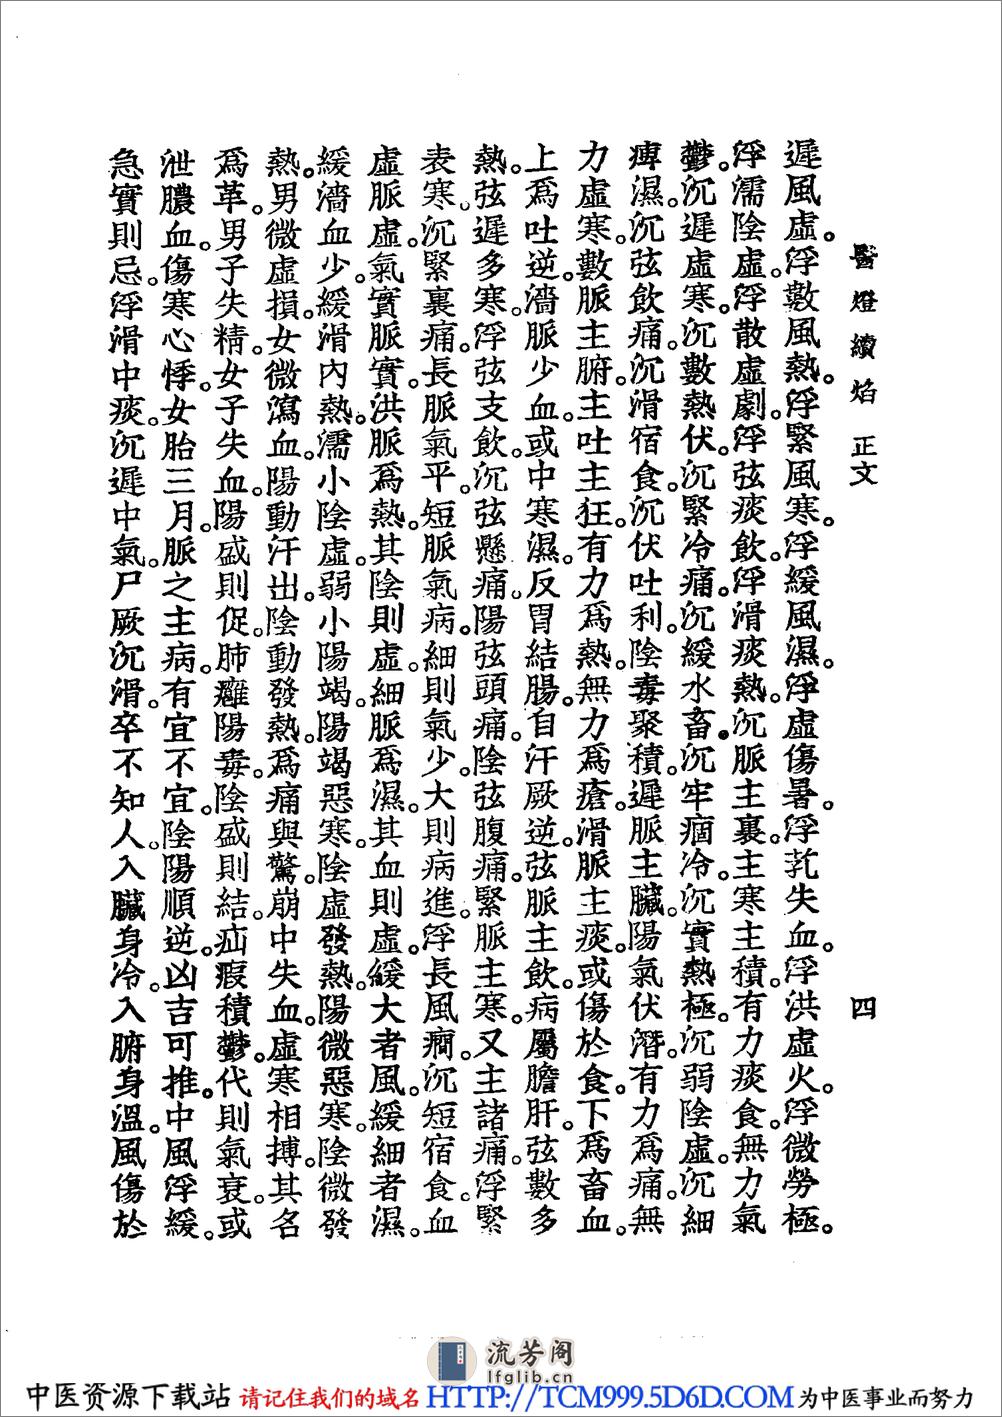 醫燈續焰 正文 四
遲風虛。浮數風熱。浮緊風寒。浮緩風濕。浮虛傷暑。浮芤失血。浮洪虛火。浮微勞極。
浮濡陰虛。浮散虛劇。浮弦痰飲。浮滑痰熱。沉脈主裏。主寒主積。有力痰食。無力氣
鬱。沉遲虛寒。沉數熱伏。沉緊冷痛。沉緩水畜。沉牢痼冷。沉實熱極。沉弱陰虛。沉細
痺濕。沉弦飲痛。沉滑宿食。沉伏吐利。陰毒聚積。遲脈主臟。陽氣伏潛。有力為痛。無
力虛寒。數脈主腑。主吐主狂。有力為熱。無力為瘡。滑脈主痰。或傷於食。下為畜血。
上為吐逆。濇脈少血。或中寒濕。反胃結腸。自汗厥逆。弦脈主飲。病屬膽肝。弦數多
熱。弦遲多寒。浮弦支飲。沉弦懸痛。陽弦頭痛。陰弦腹痛。緊脈主寒。又主諸痛。浮緊
表寒。沉緊裏痛。長脈氣平。短脈氣病。細則氣少。大則病進。浮長風癇。沉短宿食。血
虛脈虛。氣實脈實。洪脈為熱。其陰則虛。細脈為濕。其血則虛。緩大者風。緩細者濕。
緩濇血少。緩滑內熱。濡小陰虛。弱小陽竭。陽竭惡寒。陰虛發熱。陽微惡寒。陰微發
熱。男微虛損。女微瀉血。陽動汗出。陰動發熱。為痛與驚。崩中失血。虛寒相搏。其名
為革。男子失精。女子失血。陽盛則促。肺癰陽毒。陰盛則結。疝瘕積鬱。代則氣衰。或
泄膿血。傷寒心悸。女胎三月。脈之主病。有宜不宜。陰陽順逆。凶吉可推。中風浮緩。
急實則忌。浮滑中痰。沉遲中氣。尸厥沉滑。卒不知人。入臟身冷。入腑身溫。風傷於
流芳阁
lfglib.cn
中医资源下载站 请记住我们的域名 HTTP://TCM999.5D6D.COM 为中医事业而努力